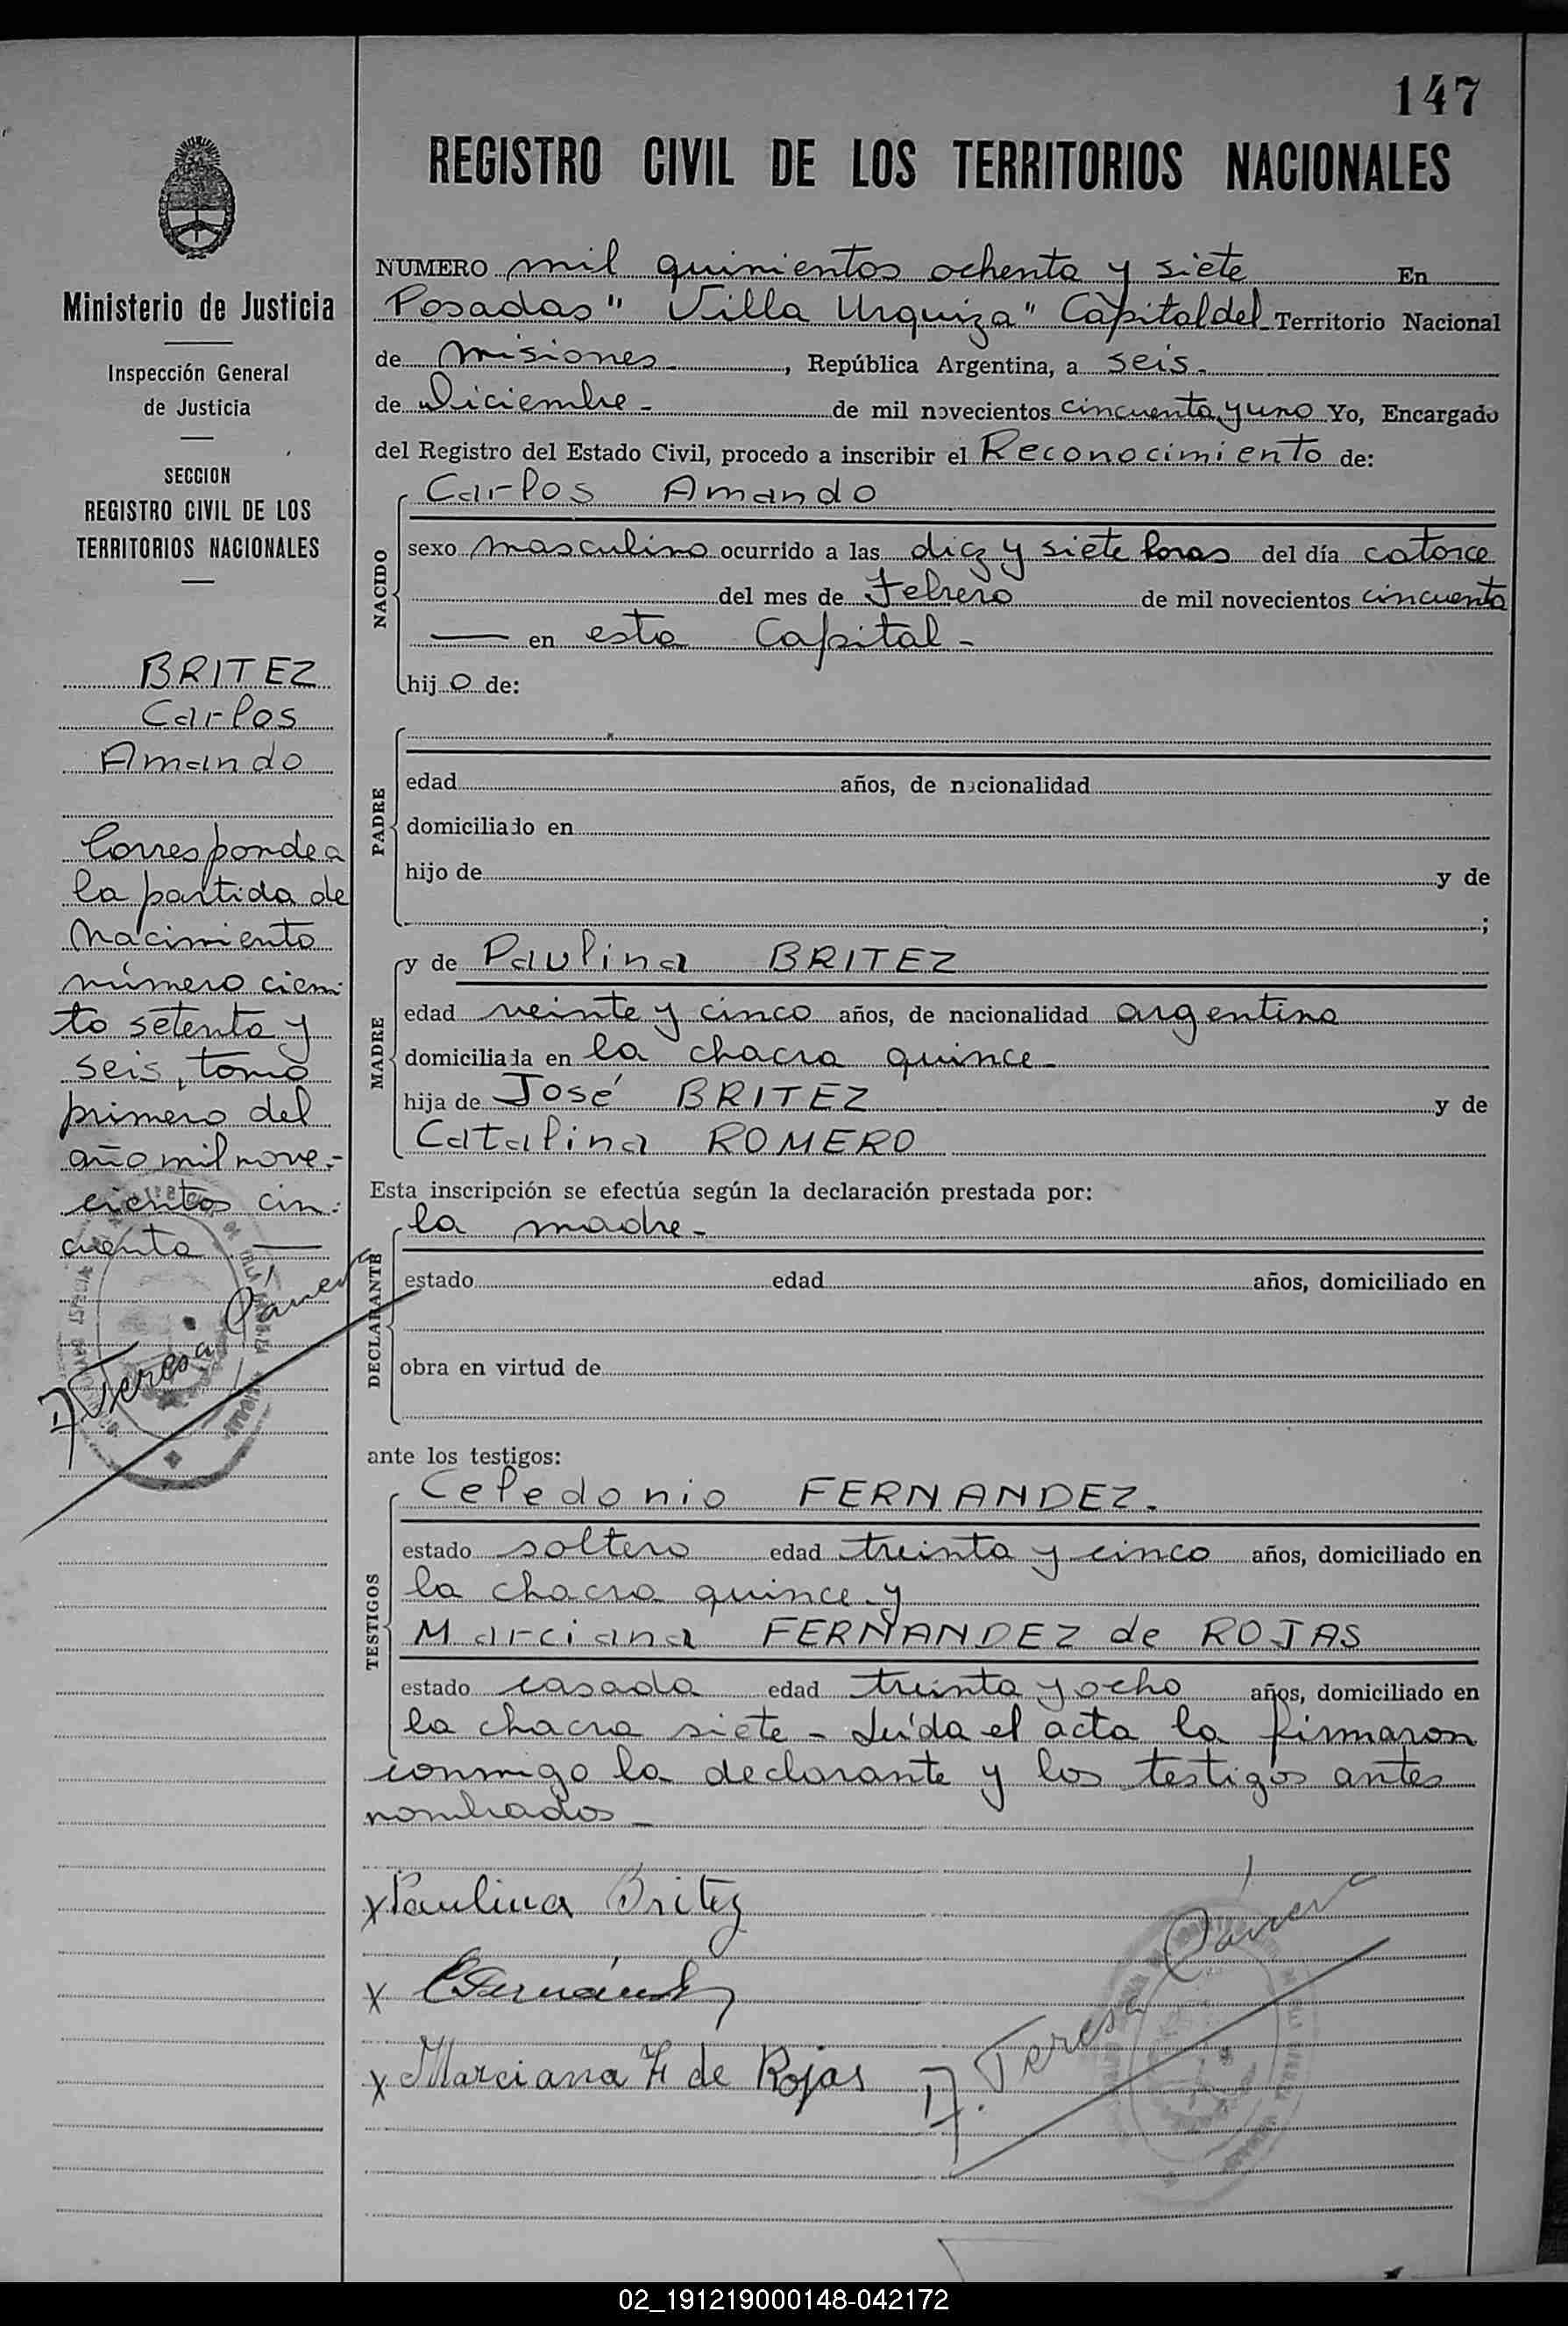 147
REGISTRO CIVIL DE LOS TERRITORIOS NACIONALES
Ministerio de Justicia
Inspección General
de Justicia
SECCION
REGISTRO CIVIL DE LOS
TERRITORIOS NACIONALES
BRITEZ
Carlos
Amando
Corresponde a
la partida de
Nacimiento
número cien-
to setenta y
seis, tomo
primero del
año mil nove-
cientos cin-
cuenta
Teresa
NUMERO mil quinientos ochenta y siete En
Posadas "Villa Urquiza" Capital del Territorio Nacional
de Misiones, República Argentina, a seis
de Diciembre - de mil novecientos cincuenta y uno Yo, Encargado
del Registro del Estado Civil, procedo a inscribir el Reconocimiento de:
NACIDO
Carlos Amando
sexo masculino ocurrido a las diez y siete horas del día catorce
del mes de Febrero de mil novecientos cincuenta
— en esta Capital -
hijo de:
PADRE
edad años, de nacionalidad
domiciliado en
hijo de y de
;
MADRE
y de Paulina BRITEZ
edad veinte y cinco años, de nacionalidad argentina
domiciliada en la chacra quince -
hija de José BRITEZ y de
Catalina ROMERO
Esta inscripción se efectúa según la declaración prestada por:
DECLARANTE
la madre -
estado edad años, domiciliado en
obra en virtud de
ante los testigos:
TESTIGOS
Celedonio FERNANDEZ.
estado soltero edad treinta y cinco años, domiciliado en
la chacra quince y
Marciana FERNANDEZ de ROJAS
estado casada edad treinta y ocho años, domiciliado en
la chacra siete - Leída el acta la firmaron
conmigo la declarante y los testigos antes
nombrados -
x Paulina Britez
x CFernández
x Marciana F de Rojas
Teresa
02_191219000148-042172